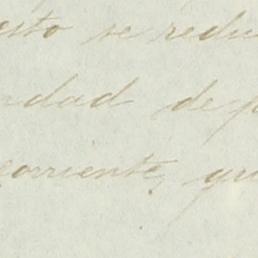 esto se redu
ndad de p
corriente, qu